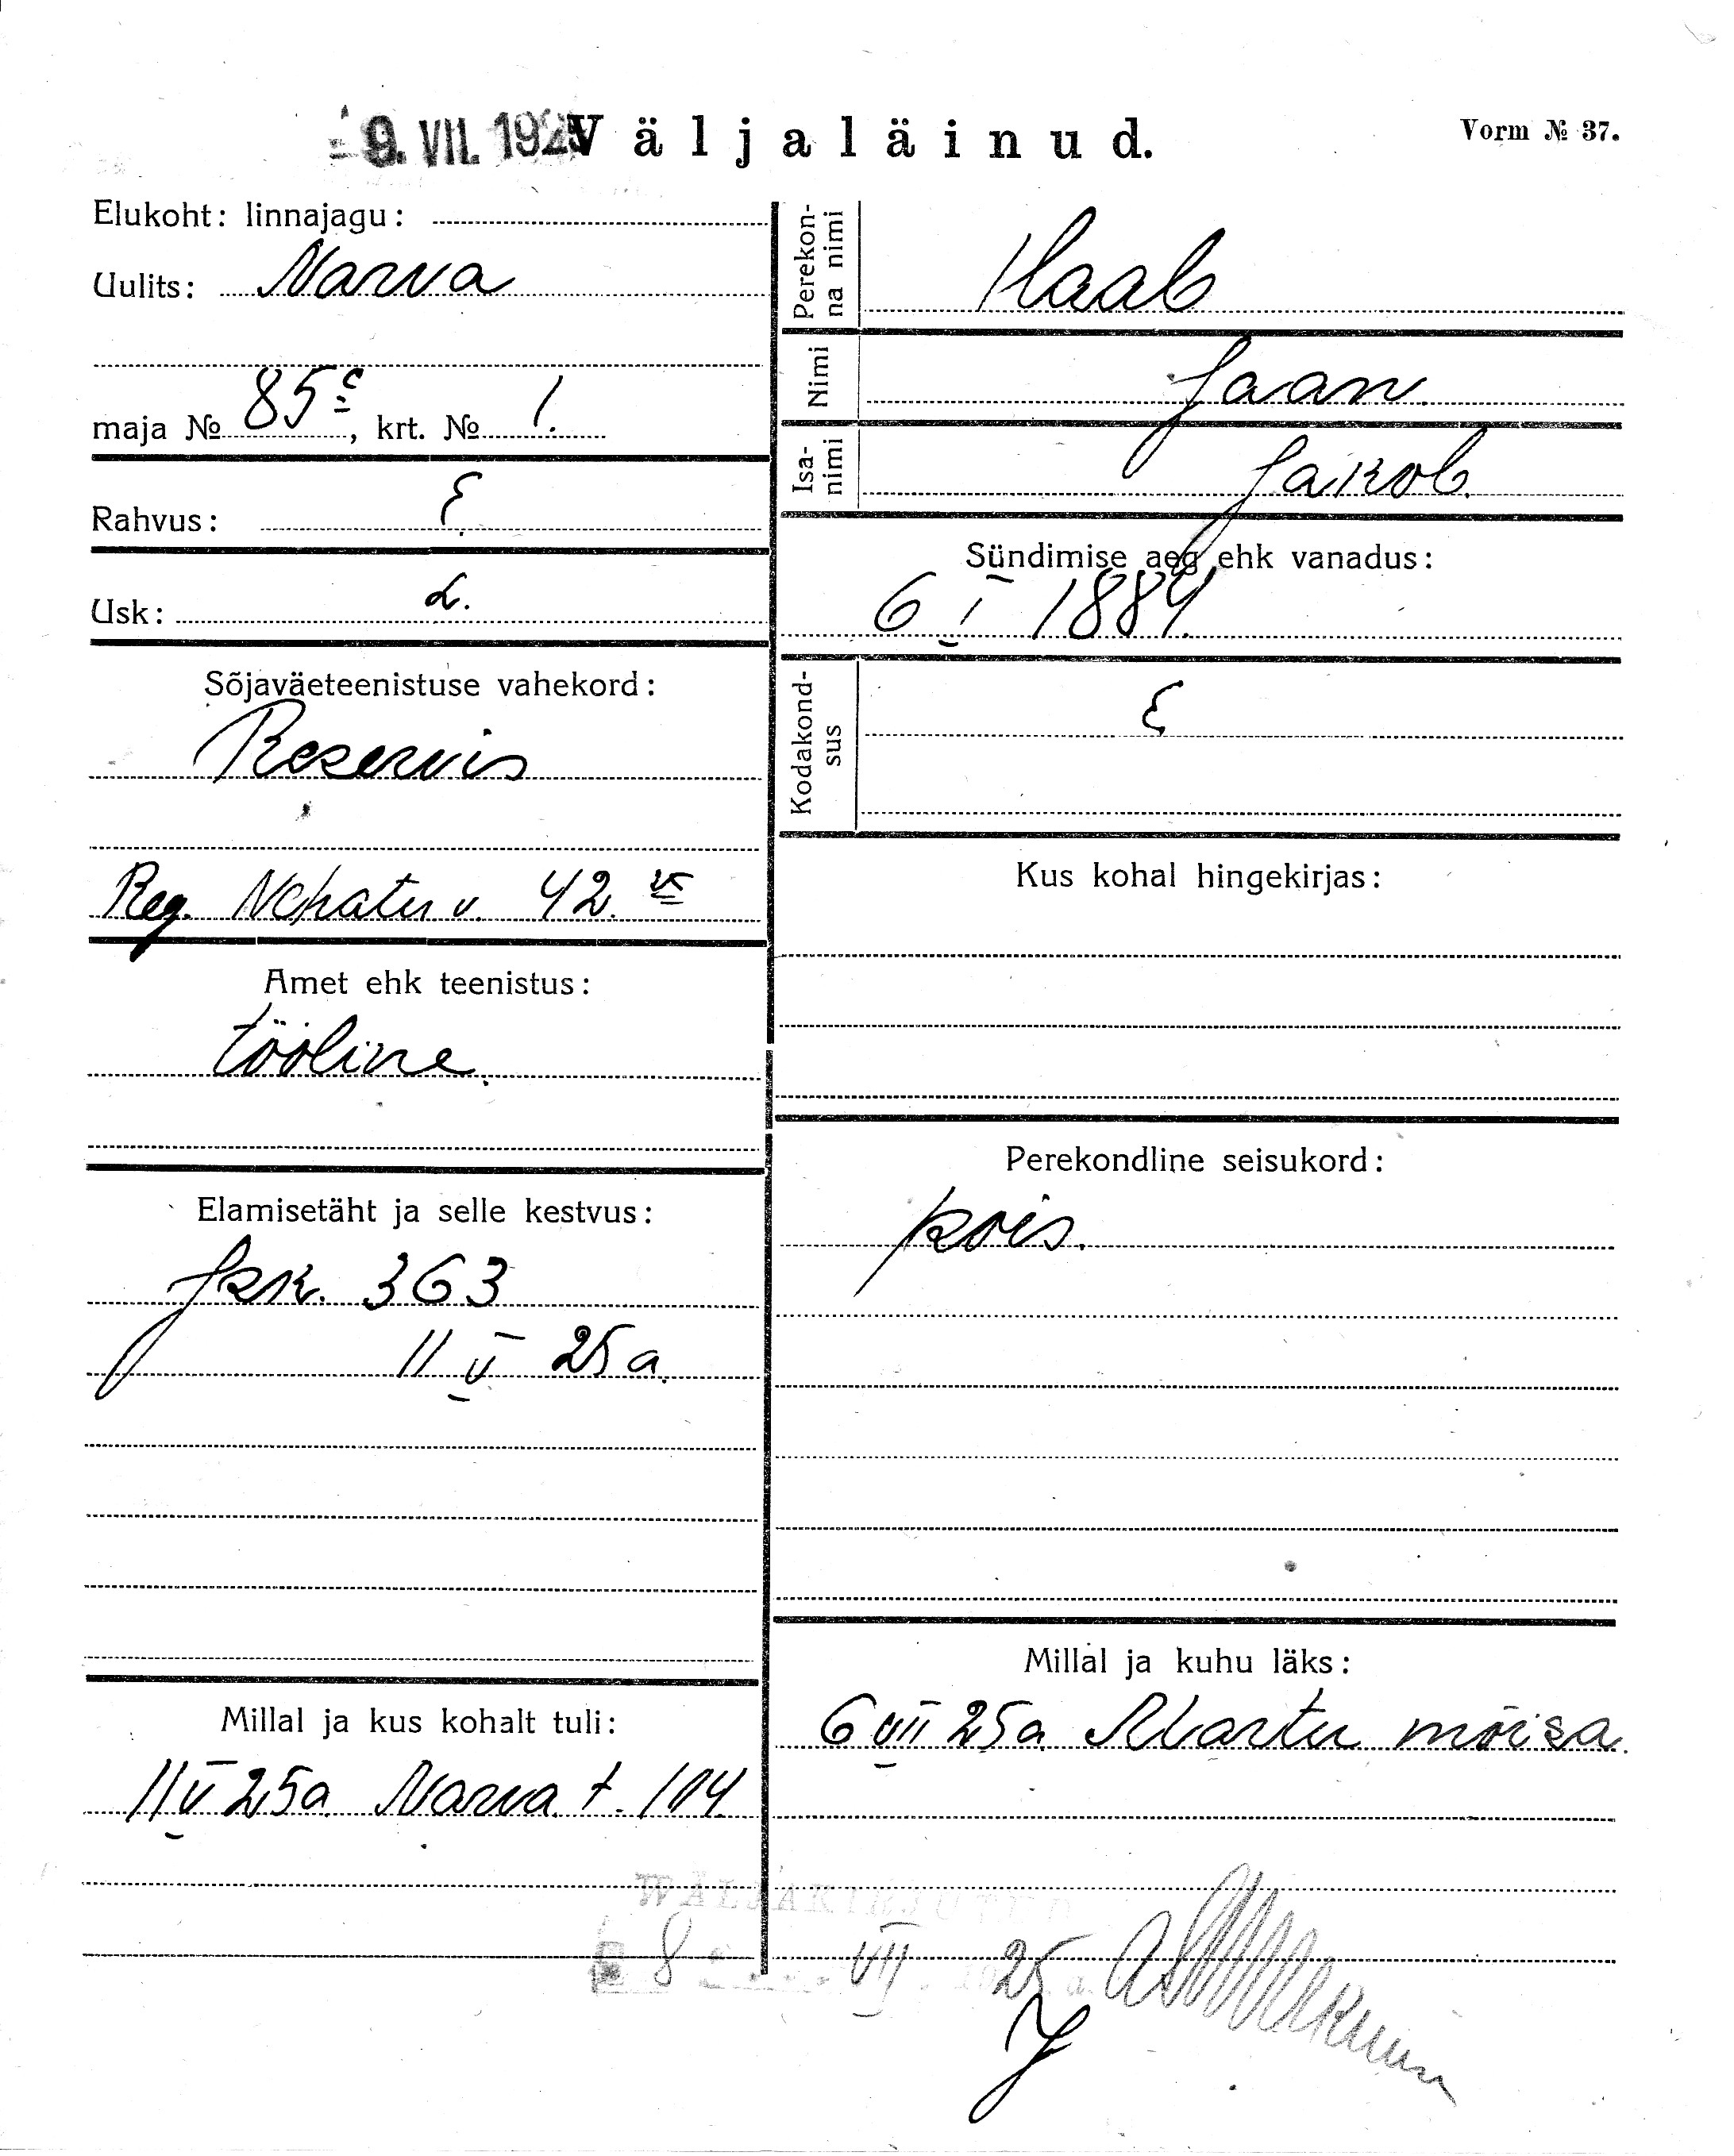 9. VII. 1925
Väljaläinud.
Vorm № 37.
Elukoht: linnajagu:
Uulits: Narva
maja № 85c, krt. № 1.
Rahvus: E.
Usk: L.
Sõjaväeteenistuse vahekord:
Reservis
Reg. Nehatu v. 42.
Amet ehk teenistus:
tööline.
Elamisetäht ja selle kestvus:
Isk. 363
11 V 25 a.
Millal ja kus kohalt tuli:
11 V 25 a. Narva t. 104.
Perekonna nimi
Haab
Nimi
Jaan.
Isanimi
Jakob.
Sündimise aeg ehk vanadus:
6 I 1884.
Kodakondsus
E
Kus kohal hingekirjas:
Perekondline seisukord:
pois.
Millal ja kuhu läks:
6 VII 25 a. mõisa.
WÄLJAKIRJUTUD
8 VII 1925 a.